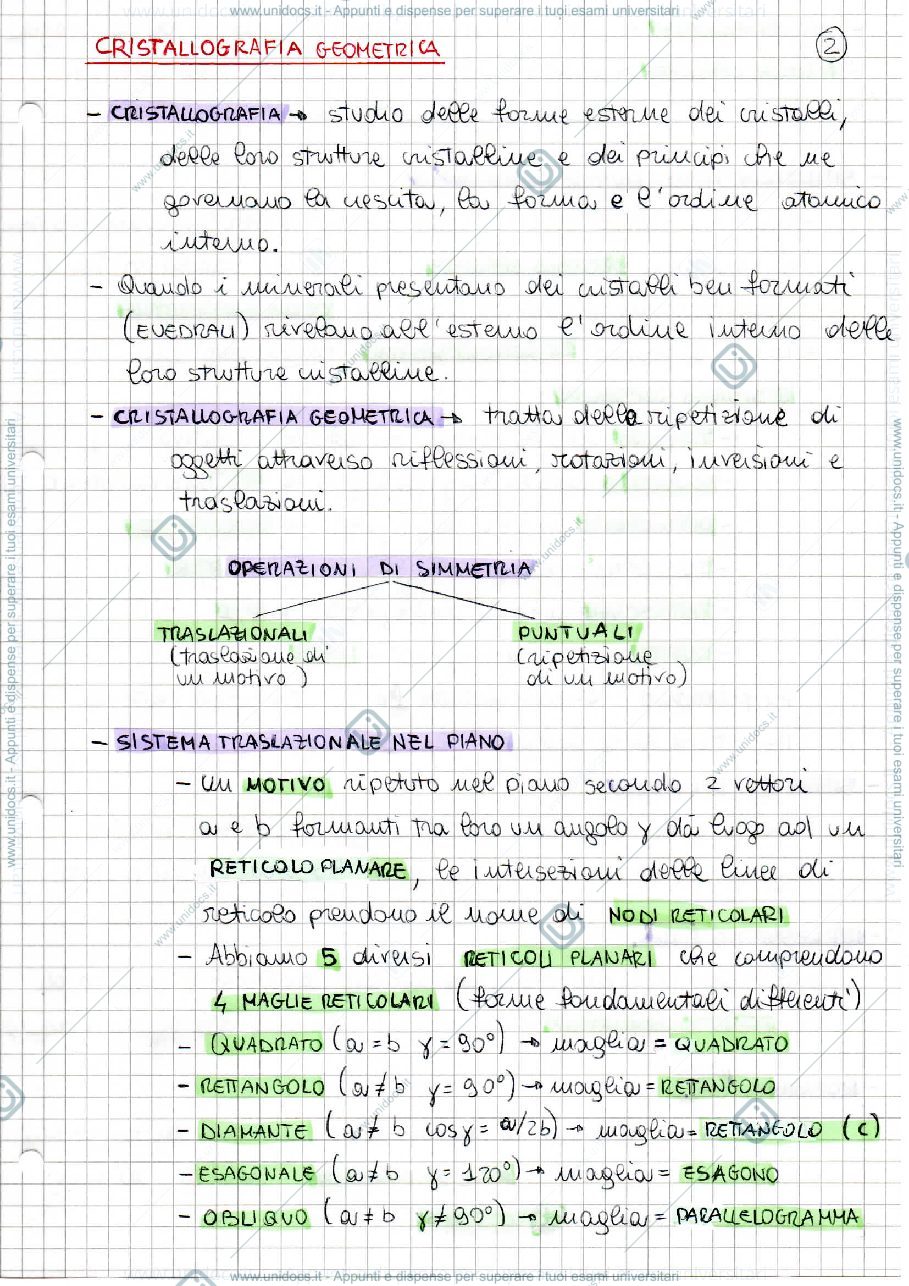 www.unidocs.it - Appunti e dispense per superare i tuoi esami universitari
CRISTALLOGRAFIA GEOMETRICA
2
- CRISTALLOGRAFIA → studio delle forme esterne dei cristalli,
delle loro strutture cristalline e dei principi che ne
governano la crescita, la forma e l'ordine atomico
interno.
- Quando i minerali presentano dei cristalli ben formati
(EUEDRALI) rivelano all'esterno l'ordine interno delle
loro strutture cristalline.
- CRISTALLOGRAFIA GEOMETRICA → tratta della ripetizione di
oggetti attraverso riflessioni, rotazioni, inversioni e
traslazioni.
OPERAZIONI DI SIMMETRIA
TRASLAZIONALI
(traslazione di
un motivo)
PUNTUALI
(ripetizione
di un motivo)
- SISTEMA TRASLAZIONALE NEL PIANO
- Un MOTIVO ripetuto nel piano secondo 2 vettori
a e b formanti tra loro un angolo γ dà luogo ad un
RETICOLO PLANARE, le intersezioni delle linee di
reticolo prendono il nome di NODI RETICOLARI
- Abbiamo 5 diversi RETICOLI PLANARI che comprendono
4 MAGLIE RETICOLARI (forme fondamentali differenti)
- QUADRATO (a = b γ = 90°) → maglia = QUADRATO
- RETTANGOLO (a ≠ b γ = 90°) → maglia = RETTANGOLO
- DIAMANTE (a ≠ b cosγ = a/2b) → maglia = RETTANGOLO (C)
- ESAGONALE (a ≠ b γ = 120°) → maglia = ESAGONO
- OBLIQUO (a ≠ b γ ≠ 90°) → maglia = PARALLELOGRAMMA
www.unidocs.it - Appunti e dispense per superare i tuoi esami universitari
www.unidocs.it - Appunti e dispense per superare i tuoi esami universitari
www.unidocs.it - Appunti e dispense per superare i tuoi esami universitari